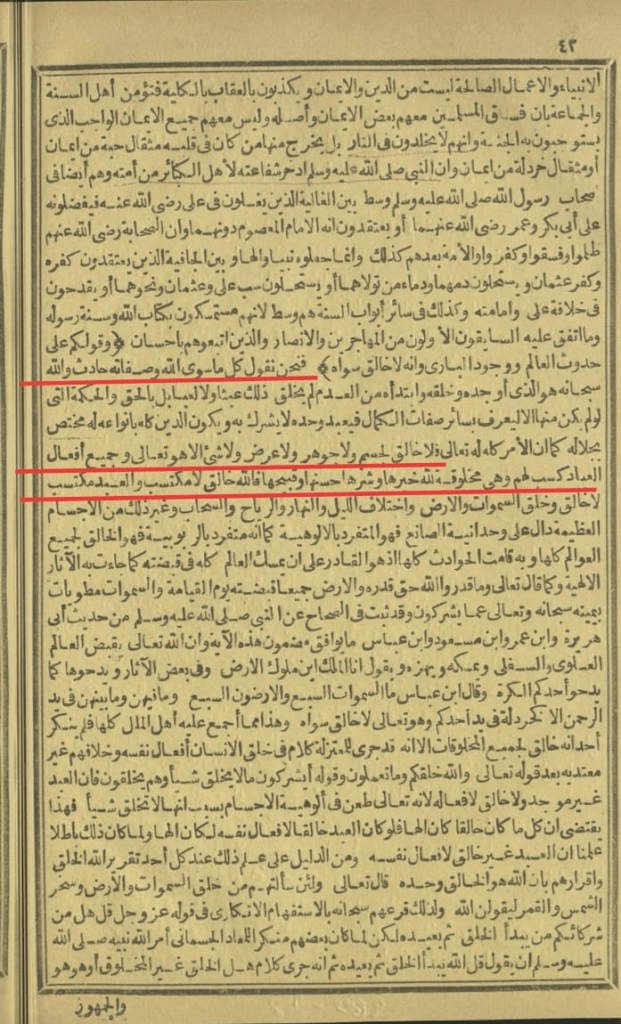 ٤٢
الانبياء والاعمال الصالحة ليست من الدين والايمان ويكذبون بالعقاب بالكلية فتؤمن أهل السنة
والجماعة بان فساق المسلمين معهم بعض الايمان وأصله وليس معهم جميع الايمان الواجب الذى
يستوجبون به الجنة وانهم لا يخلدون فى النار بل يخرج منها من كان فى قلبه مثقال حبة من ايمان
أو مثقال خردلة من ايمان وان النبى صلى الله عليه وسلم ادخر شفاعته لأهل الكبائر من أمته وهم أيضا فى
صحاب رسول الله صلى الله عليه وسلم وسط بين الغالية الذين يغلون فى على رضى الله عنه فيفضلونه
على أبى بكر وعمر رضى الله عنهما أو يعتقدون انه الامام المعصوم دونهما وان الصحابة رضى الله عنهم
ظلموا وفسقوا وكفروا والأمة بعدهم كذلك وانما جعلوه نبيا والها وبين الجافية الذين يعتقدون كفره
وكفر عثمان ويستحلون دمهما ودماء من تولاهما أو يستحلون سب على وعثمان ونحوهما أو يقدحون
فى خلافة على وامامته وكذلك فى سائر أبواب السنة هم وسط لانهم مستمسكون بكتاب الله وسنة رسوله
وما اتفق عليه السابقون الأولون من المهاجرين والانصار والذين اتبعوهم باحسان ﴿وقولكم على
حدوث العالم ووجود البارى وانه لا خالق سواه﴾ فنحن نقول كل ما سوى الله وصفاته حادث والله
سبحانه هو الذى أوجده وخلقه وابتدأه من العدم لم يخلق ذلك عبثا ولا لعبا بل بالحق والحكمة التى
لو لم يكن منها الا ليعرف بسائر صفات الكمال فيعبد وحده لا يشرك به ويكون الدين كله بانواعه له مختص
بجلاله كما ان الأمر كله له تعالى فلا خالق لجسم ولا جوهر ولا عرض ولا شئ الا هو تعالى وجميع أفعال
العباد كسب لهم وهى مخلوقة لله خيرها وشرها حسنها وقبيحها فالله خالق لا مكتسب والعبد مكتسب
لا خالق وخلق السموات والارض واختلاف الليل والنهار والرياح والسحاب وغير ذلك من الاجسام
العظيمة دال على وحدانية الصانع فهو المتفرد بالالوهية كما انه متفرد بالربوبية فهو الخالق لجميع
العوالم كلها وبه قامت الحوادث كلها اذ هو القادر على ان يمسك العالم كله فى قبضته كما جاءت به الآثار
الالهية وكما قال تعالى وما قدروا الله حق قدره والارض جميعا قبضته يوم القيامة والسموات مطويات
بيمينه سبحانه وتعالى عما يشركون وقد ثبت فى الصحاح عن النبى صلى الله عليه وسلم من حديث أبى
هريرة وابن عمر وابن مسعود وابن عباس ما يوافق مضمون هذه الآية وان الله تعالى يقبض العالم
العلوى والسفلى ويمسكه ويهزه ويقول انا الملك اين ملوك الارض وفى بعض الآثار ويدحوها كما
يدحو أحدكم الكرة وقال ابن عباس ما السموات السبع والارضون السبع وما فيهن وما بينهن فى يد
الرحمن الا كخردلة فى يد أحدكم وهو تعالى لا خالق سواه وهذا مما أجمع عليه أهل الملل كلها فلم ينكر
أحد انه خالق لجميع المخلوقات الا انه قد جرى للمعتزلة كلام فى خلق الانسان أفعال نفسه وخلافهم غير
معتد به بعد قوله تعالى والله خلقكم وما تعملون وقوله أيشركون ما لا يخلق شيأ وهم يخلقون فان العبد
غير موجد ولا خالق لافعاله لانه تعالى طعن فى ألوهية الاجسام بسبب انها لا تخلق شيأ فهذا
يقتضى ان كل ما كان خالقا كان الها فلو كان العبد خالقا لافعال نفسه لكان الها ولما كان ذلك باطلا
علمنا ان العبد غير خالق لافعال نفسه ومن الدليل على علم ذلك عند كل أحد تقرير الله الخلق
واقرارهم بان الله هو الخالق وحده قال تعالى ولئن سألتهم من خلق السموات والارض وسخر
الشمس والقمر ليقولن الله ولذلك قرعهم سبحانه بالاستفهام الانكارى فى قوله عز وجل قل هل من
شركائكم من يبدأ الخلق ثم يعيده لكن لما كان بعضهم منكرا للمعاد الجسمانى أمر الله نبيه صلى الله
عليه وسلم ان يقول قل الله يبدأ الخلق ثم يعيده ثم انه جرى كلام هل الخلق غير المخلوق أو هو هو
والجمهور